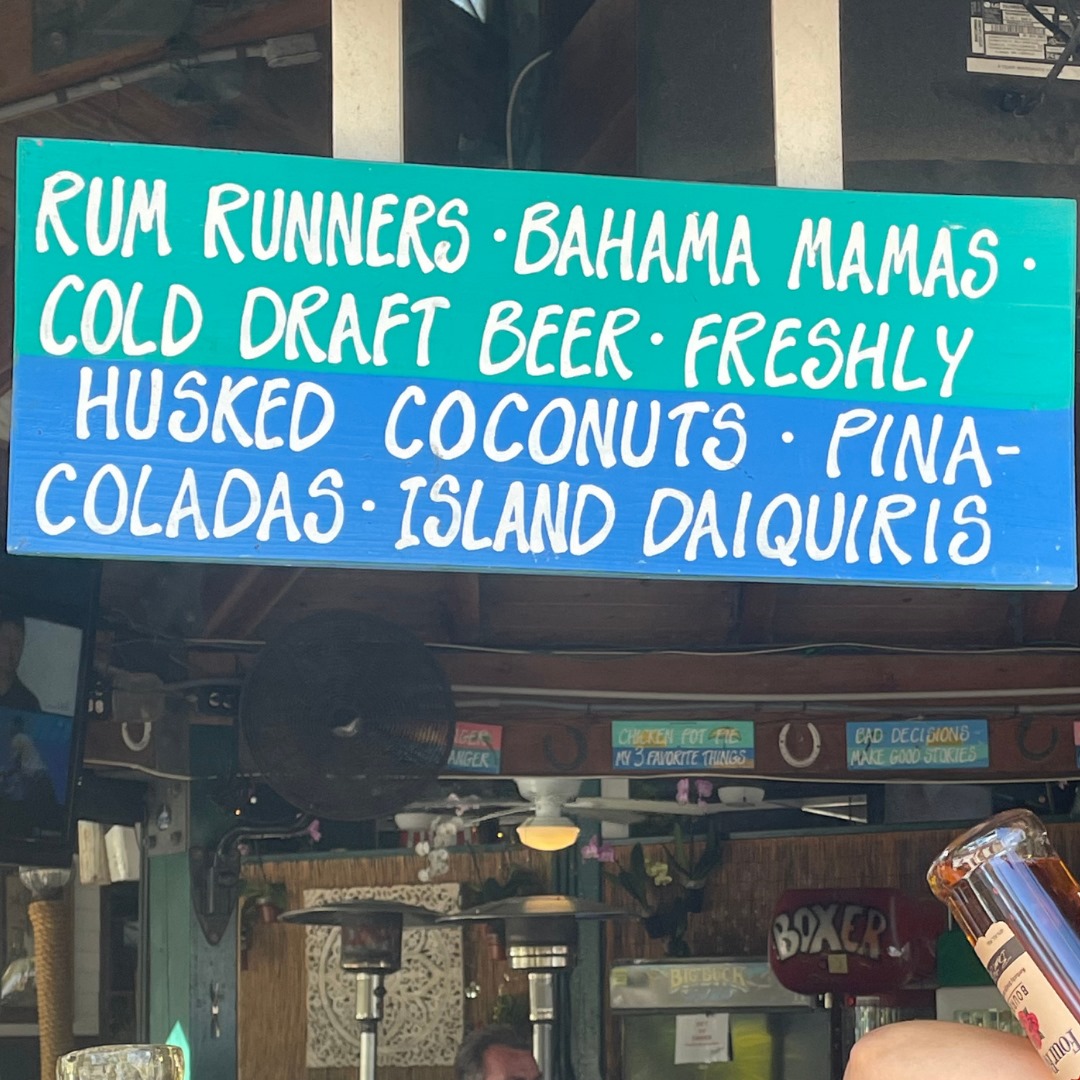 RUM RUNNERS · BAHAMA MAMAS ·
COLD DRAFT BEER · FRESHLY
HUSKED COCONUTS · PINA-
COLADAS · ISLAND DAIQUIRIS
CHICKEN POT PIE
MY 3 FAVORITE THINGS
BAD DECISIONS
MAKE GOOD STORIES
BOXER
BIG BUCK